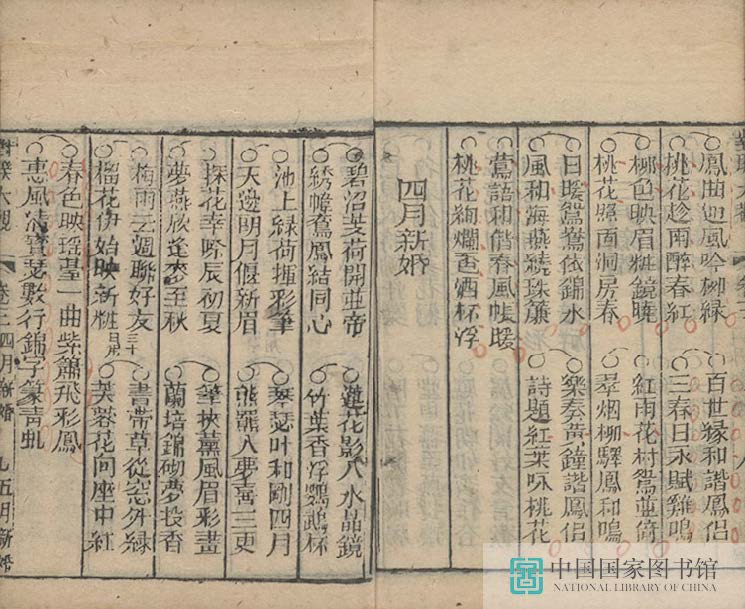 鳳曲迎風吟柳綠 百世緣和諧鳳侶
桃花趁雨醉春紅 三春日永賦雞鳴
柳色映眉粧鏡曉 紅雨花村鴛並倚
桃花照面洞房春 翠烟柳驛鳳和鳴
日暖鴛鴦依錦水 樂奏黃鐘諧鳳侶
風和海燕繞珠簾 詩題紅葉咏桃花
鶯語和偕春風帳暖
桃花絢爛香酒杯浮
四月新婚
碧沼芰荷開並蒂 蓮花影入水晶鏡
綉幃鸞鳳結同心 竹葉香浮鸚鵡杯
池上綠荷揮彩筆 琴瑟叶和剛四月
天邊明月偃新眉 熊羆入夢喜三更
探花幸際辰初夏 筆挾薰風眉彩畫
夢燕欣逢麥至秋 蘭培錦砌夢投香
梅雨云週聯好友 三十日用 書帶草從窓外綠
榴花伊始映新粧 芙蓉花向座中紅
春色映瑤臺一曲紫簫飛彩鳳
惠風清寶瑟數行錦字篆青虬
大觀 卷三 四月新婚 九 五月新婚
中国国家图书馆
NATIONAL LIBRARY OF CHINA